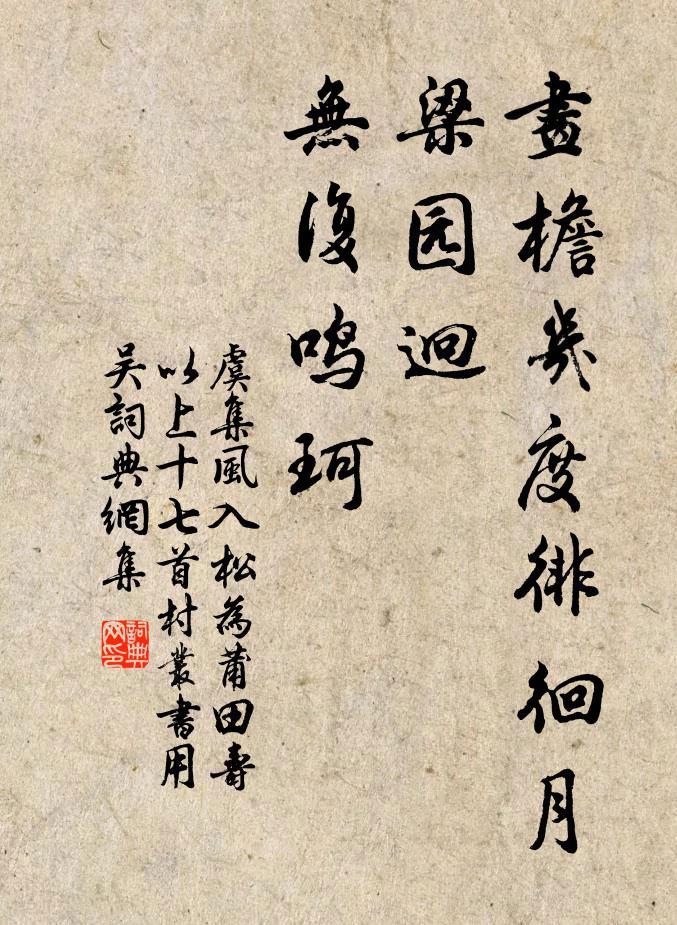 畫檐幾度徘徊月
梁园迥
無復鳴珂
虞集風入松為莆田壽
以上十七首村叢書用
吴詞典網集
詞典网印